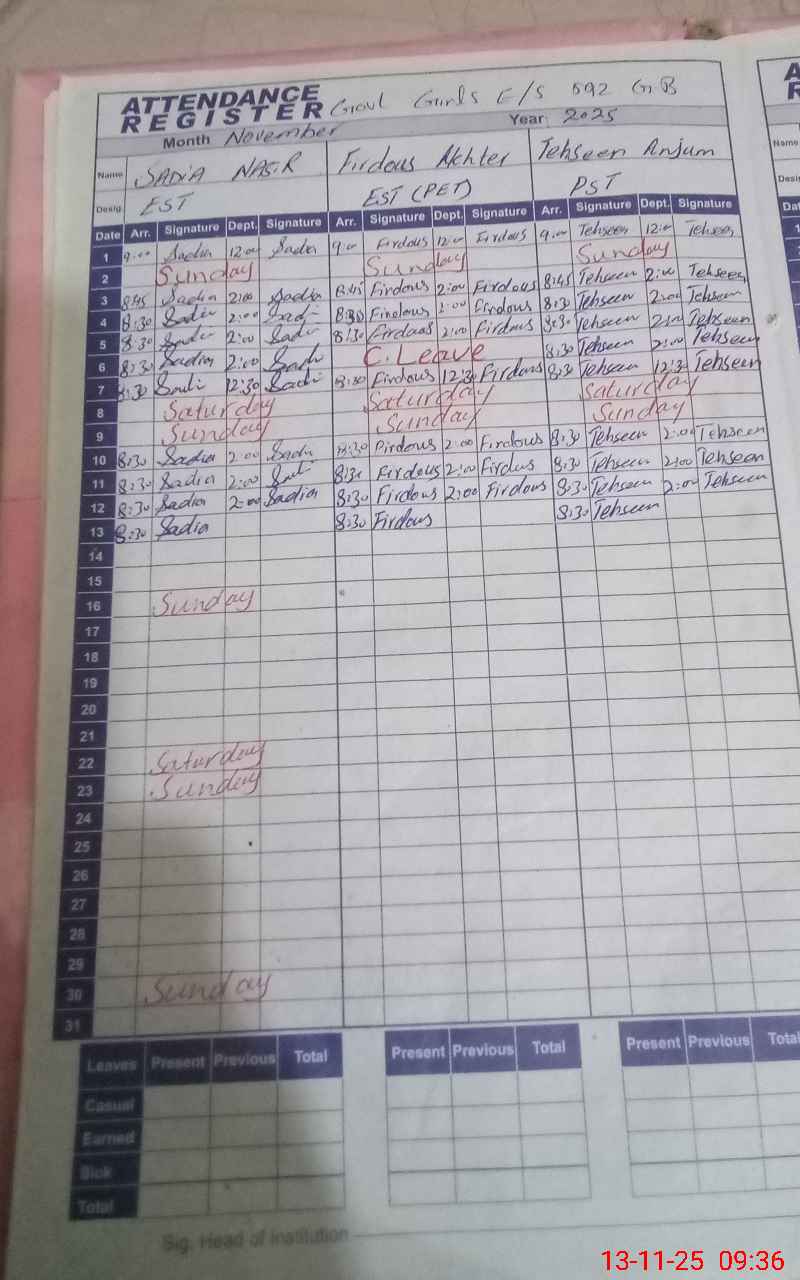 ATTENDANCE REGISTER Govt Girls E/S 592 G.B
Month November Year 2025
Name SADIA NASIR Firdous Akhter Tehseen Anjum
Desig. EST EST (PET) PST
Date Arr. Signature Dept. Signature Arr. Signature Dept. Signature Arr. Signature Dept. Signature
1 9:00 Sadia 12:00 Sadia 9:00 Firdous 12:00 Firdous 9:00 Tehseen 12:00 Tehseen
2 Sunday Sunday Sunday
3 8:45 Sadia 2:00 Sadia 8:45 Firdous 2:00 Firdous 8:45 Tehseen 2:00 Tehseen
4 8:30 Sadia 2:00 Sadi 8:30 Firdous 2:00 Firdous 8:30 Tehseen 2:00 Tehseen
5 8:30 Sadi 2:00 Sadi 8:30 Firdous 2:00 Firdous 8:30 Tehseen 2:00 Tehseen
6 8:30 Sadia 2:00 Sadi C. Leave 8:30 Tehseen 2:00 Tehseen
7 8:30 Sadi 12:30 Sadi 8:30 Firdous 12:30 Firdous 8:30 Tehseen 12:30 Tehseen
8 Saturday Saturday Saturday
9 Sunday Sunday Sunday
10 8:30 Sadia 2:00 Sadia 8:30 Firdous 2:00 Firdous 8:30 Tehseen 2:00 Tehseen
11 8:30 Sadia 2:00 8:30 Firdous 2:00 Firdous 8:30 Tehseen 2:00 Tehseen
12 8:30 Sadia 2:00 Sadia 8:30 Firdous 2:00 Firdous 8:30 Tehseen 2:00 Tehseen
13 8:30 Sadia 8:30 Firdous 8:30 Tehseen
14
15
16 Sunday
17
18
19
20
21
22 Saturday
23 Sunday
24
25
26
27
28
29
30 Sunday
31
Leaves Present Previous Total Present Previous Total Present Previous Total
Casual
Earned
Sick
Total
Sig. Head of Institution
13-11-25 09:36